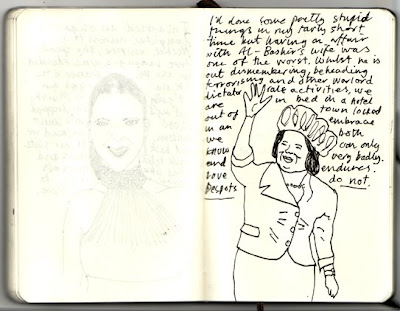 I'd done some pretty stupid
things in my fairly short
time but having an affair
with Al-Bashir's wife was
one of the worst. Whilst he is
out dismembering, beheading
terrorising and other warlord
dictator role activities, we
are in bed in a hotel
out of town locked
in an embrace
we both
know can only
end very badly.
Love endures.
Despots do not.